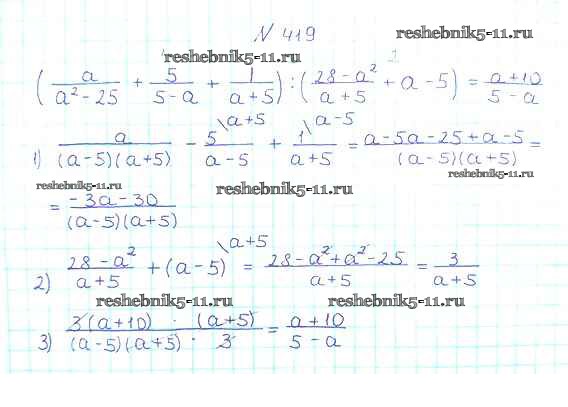 N 419
reshebnik5-11.ru
( a/(a² - 25) + 5/(5 - a) + 1/(a + 5) ) : ( (28 - a²)/(a + 5) + a - 5 ) = (a + 10)/(5 - a)
1) a/((a - 5)(a + 5)) - 5\a+5/(a - 5) + 1\a-5/(a + 5) = (a - 5a - 25 + a - 5)/((a - 5)(a + 5)) =
reshebnik5-11.ru reshebnik5-11.ru reshebnik5-11.ru
= (-3a - 30)/((a - 5)(a + 5))
2) (28 - a²)/(a + 5) + (a - 5)\a+5 = (28 - a² + a² - 25)/(a + 5) = 3/(a + 5)
reshebnik5-11.ru reshebnik5-11.ru
3) 3(a + 10) · (a + 5)/((a - 5)(a + 5) · 3) = (a + 10)/(5 - a)